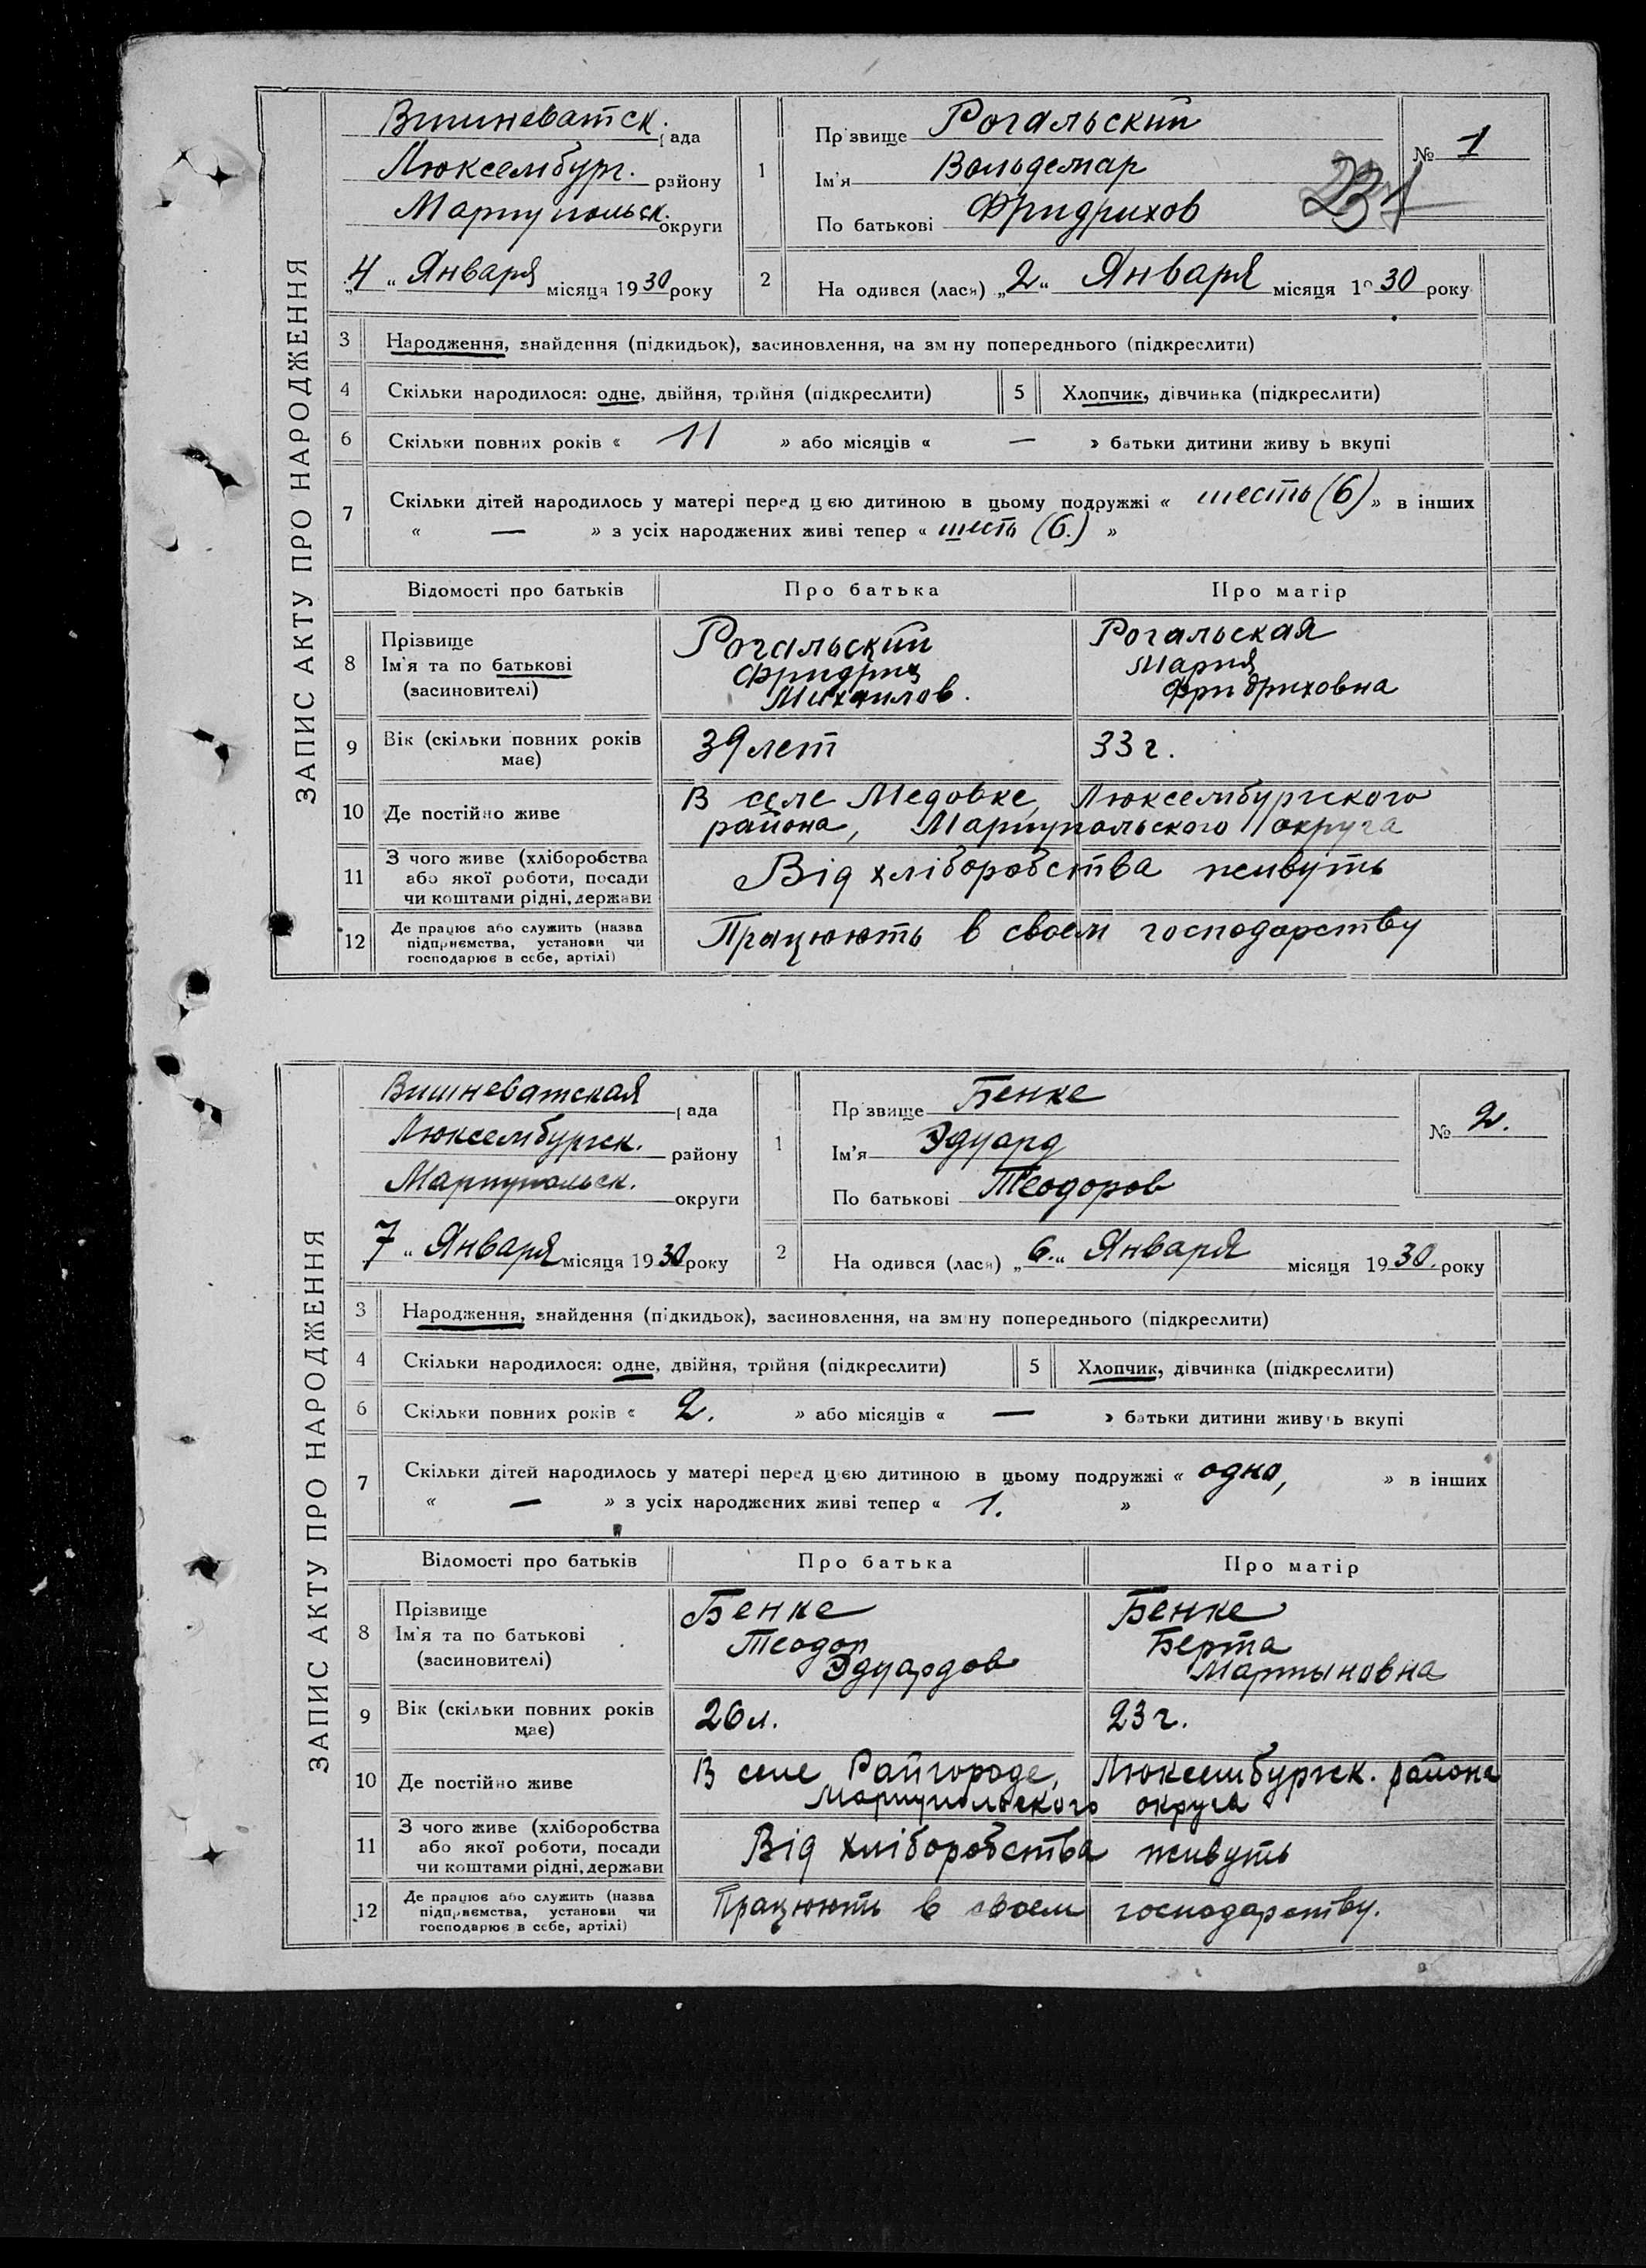 ЗАПИС АКТУ ПРО НАРОДЖЕННЯ
Вишневатск. рада
Люксембург. району
Мариупольск. округи
„4“ Января місяця 1930 року
1
Прізвище Рогальский
Ім'я Вольдемар
По батькові Фридрихов
№ 1
2
На одився (лася) „2“ Января місяця 1930 року
3 Народження, знайдення (підкидьок), засиновлення, на зміну попереднього (підкреслити)
4 Скільки народилося: одне, двійня, трійня (підкреслити) 5 Хлопчик, дівчинка (підкреслити)
6 Скільки повних років « 11 » або місяців « — » батьки дитини живуть вкупі
7 Скільки дітей народилось у матері перед цією дитиною в цьому подружжі « шесть (6) » в інших
« — » з усіх народжених живі тепер « шесть (6.) »
Відомості про батьків Про батька Про матір
8 Прізвище
Ім'я та по батькові
(засиновителі)
Рогальский
Фридрих
Михаилов.
Рогальская
Мария
Фридриховна
9 Вік (скільки повних років
має)
39 лет 33 г.
10 Де постійно живе
В селе Медовке, Люксембургского
района, Мариупольского округа
11 З чого живе (хліборобства
або якої роботи, посади
чи коштами рідні, держави
Від хліборобства живуть
12 Де працює або служить (назва
підприємства, установи чи
господарює в себе, артілі)
Працюють в своем господарству
ЗАПИС АКТУ ПРО НАРОДЖЕННЯ
Вишневатская рада
Люксембургск. району
Мариупольск. округи
7 “ Января місяця 1930 року
1
Прізвище Бенке
Ім'я Эдуард
По батькові Теодоров
№ 2.
2
На одився (лася) „6.“ Января місяця 1930. року
3 Народження, знайдення (підкидьок), засиновлення, на зміну попереднього (підкреслити)
4 Скільки народилося: одне, двійня, трійня (підкреслити) 5 Хлопчик, дівчинка (підкреслити)
6 Скільки повних років « 2. » або місяців « — » батьки дитини живуть вкупі
7 Скільки дітей народилось у матері перед цією дитиною в цьому подружжі « одно, » в інших
« — » з усіх народжених живі тепер « 1. »
Відомості про батьків Про батька Про матір
8 Прізвище
Ім'я та по батькові
(засиновителі)
Бенке
Теодор
Эдуардов
Бенке
Берта
Мартыновна
9 Вік (скільки повних років
має)
26 л. 23 г.
10 Де постійно живе
В селе Райгороде, Люксембургск. района
Мариупольского округа
11 З чого живе (хліборобства
або якої роботи, посади
чи коштами рідні, держави
Від хліборобства живуть
12 Де працює або служить (назва
підприємства, установи чи
господарює в себе, артілі)
Працюють в своем господарству.